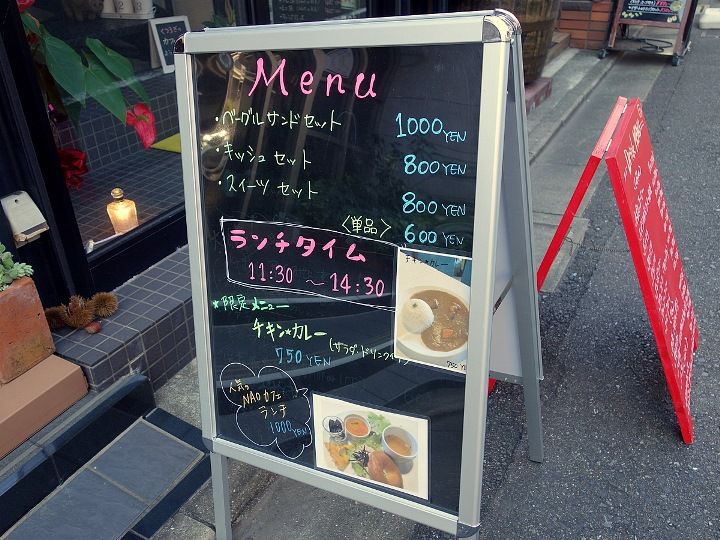 Menu
・ベーグルサンドセット 1000YEN
・キッシュセット 800YEN
・スイーツセット 800YEN
〈単品〉 600YEN
ランチタイム
11:30 〜 14:30
★限定メニュー
チキン★カレー
750YEN
チキン★カレー
750 YEN
人気の
NAOカフェ
ランチ
1000YEN